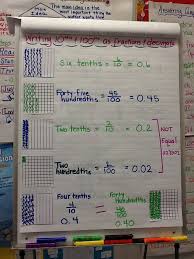 The main idea is the
Writing 10ths & 100ths as fractions/decimals
Six tenths = 6/10 = 0.6
Forty five hundredths = 45/100 = 0.45
Two tenths = 2/10 = 0.2
NOT Equal!
Two hundredths = 2/100 = 0.02
Four tenths = Forty hundredths
4/10 = 40/100
0.4 0.40